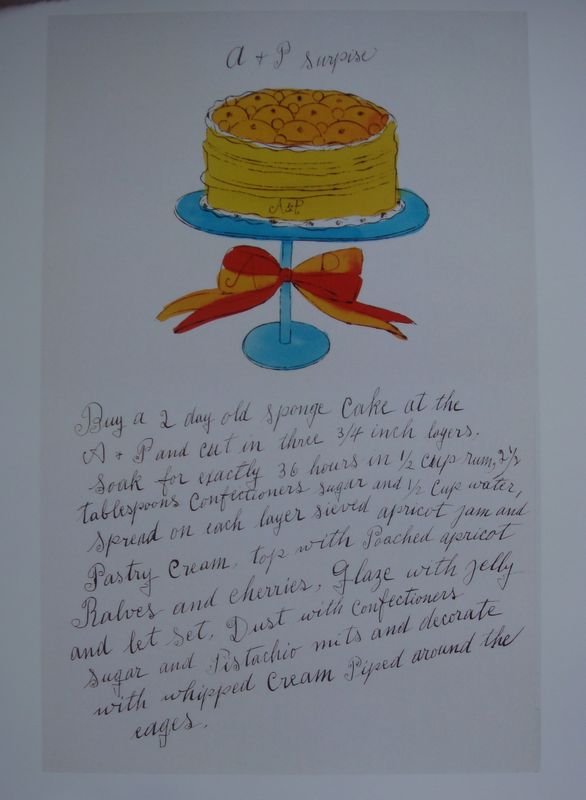 A + P surpise
A & P.
A P
Buy a 2 day old sponge cake at the
A + P and cut in three 3/4 inch layers.
soak for exactly 36 hours in 1/2 cup rum, 2 1/2
tablespoons Confectioners sugar and 1/2 cup water,
spread on each layer sieved apricot jam and
Pastry Cream, top with Poached apricot
Halves and cherries, Glaze with jelly
and let set, Dust with Confectioners
sugar and Pistachio nuts and decorate
with whipped Cream Piped around the
edges.